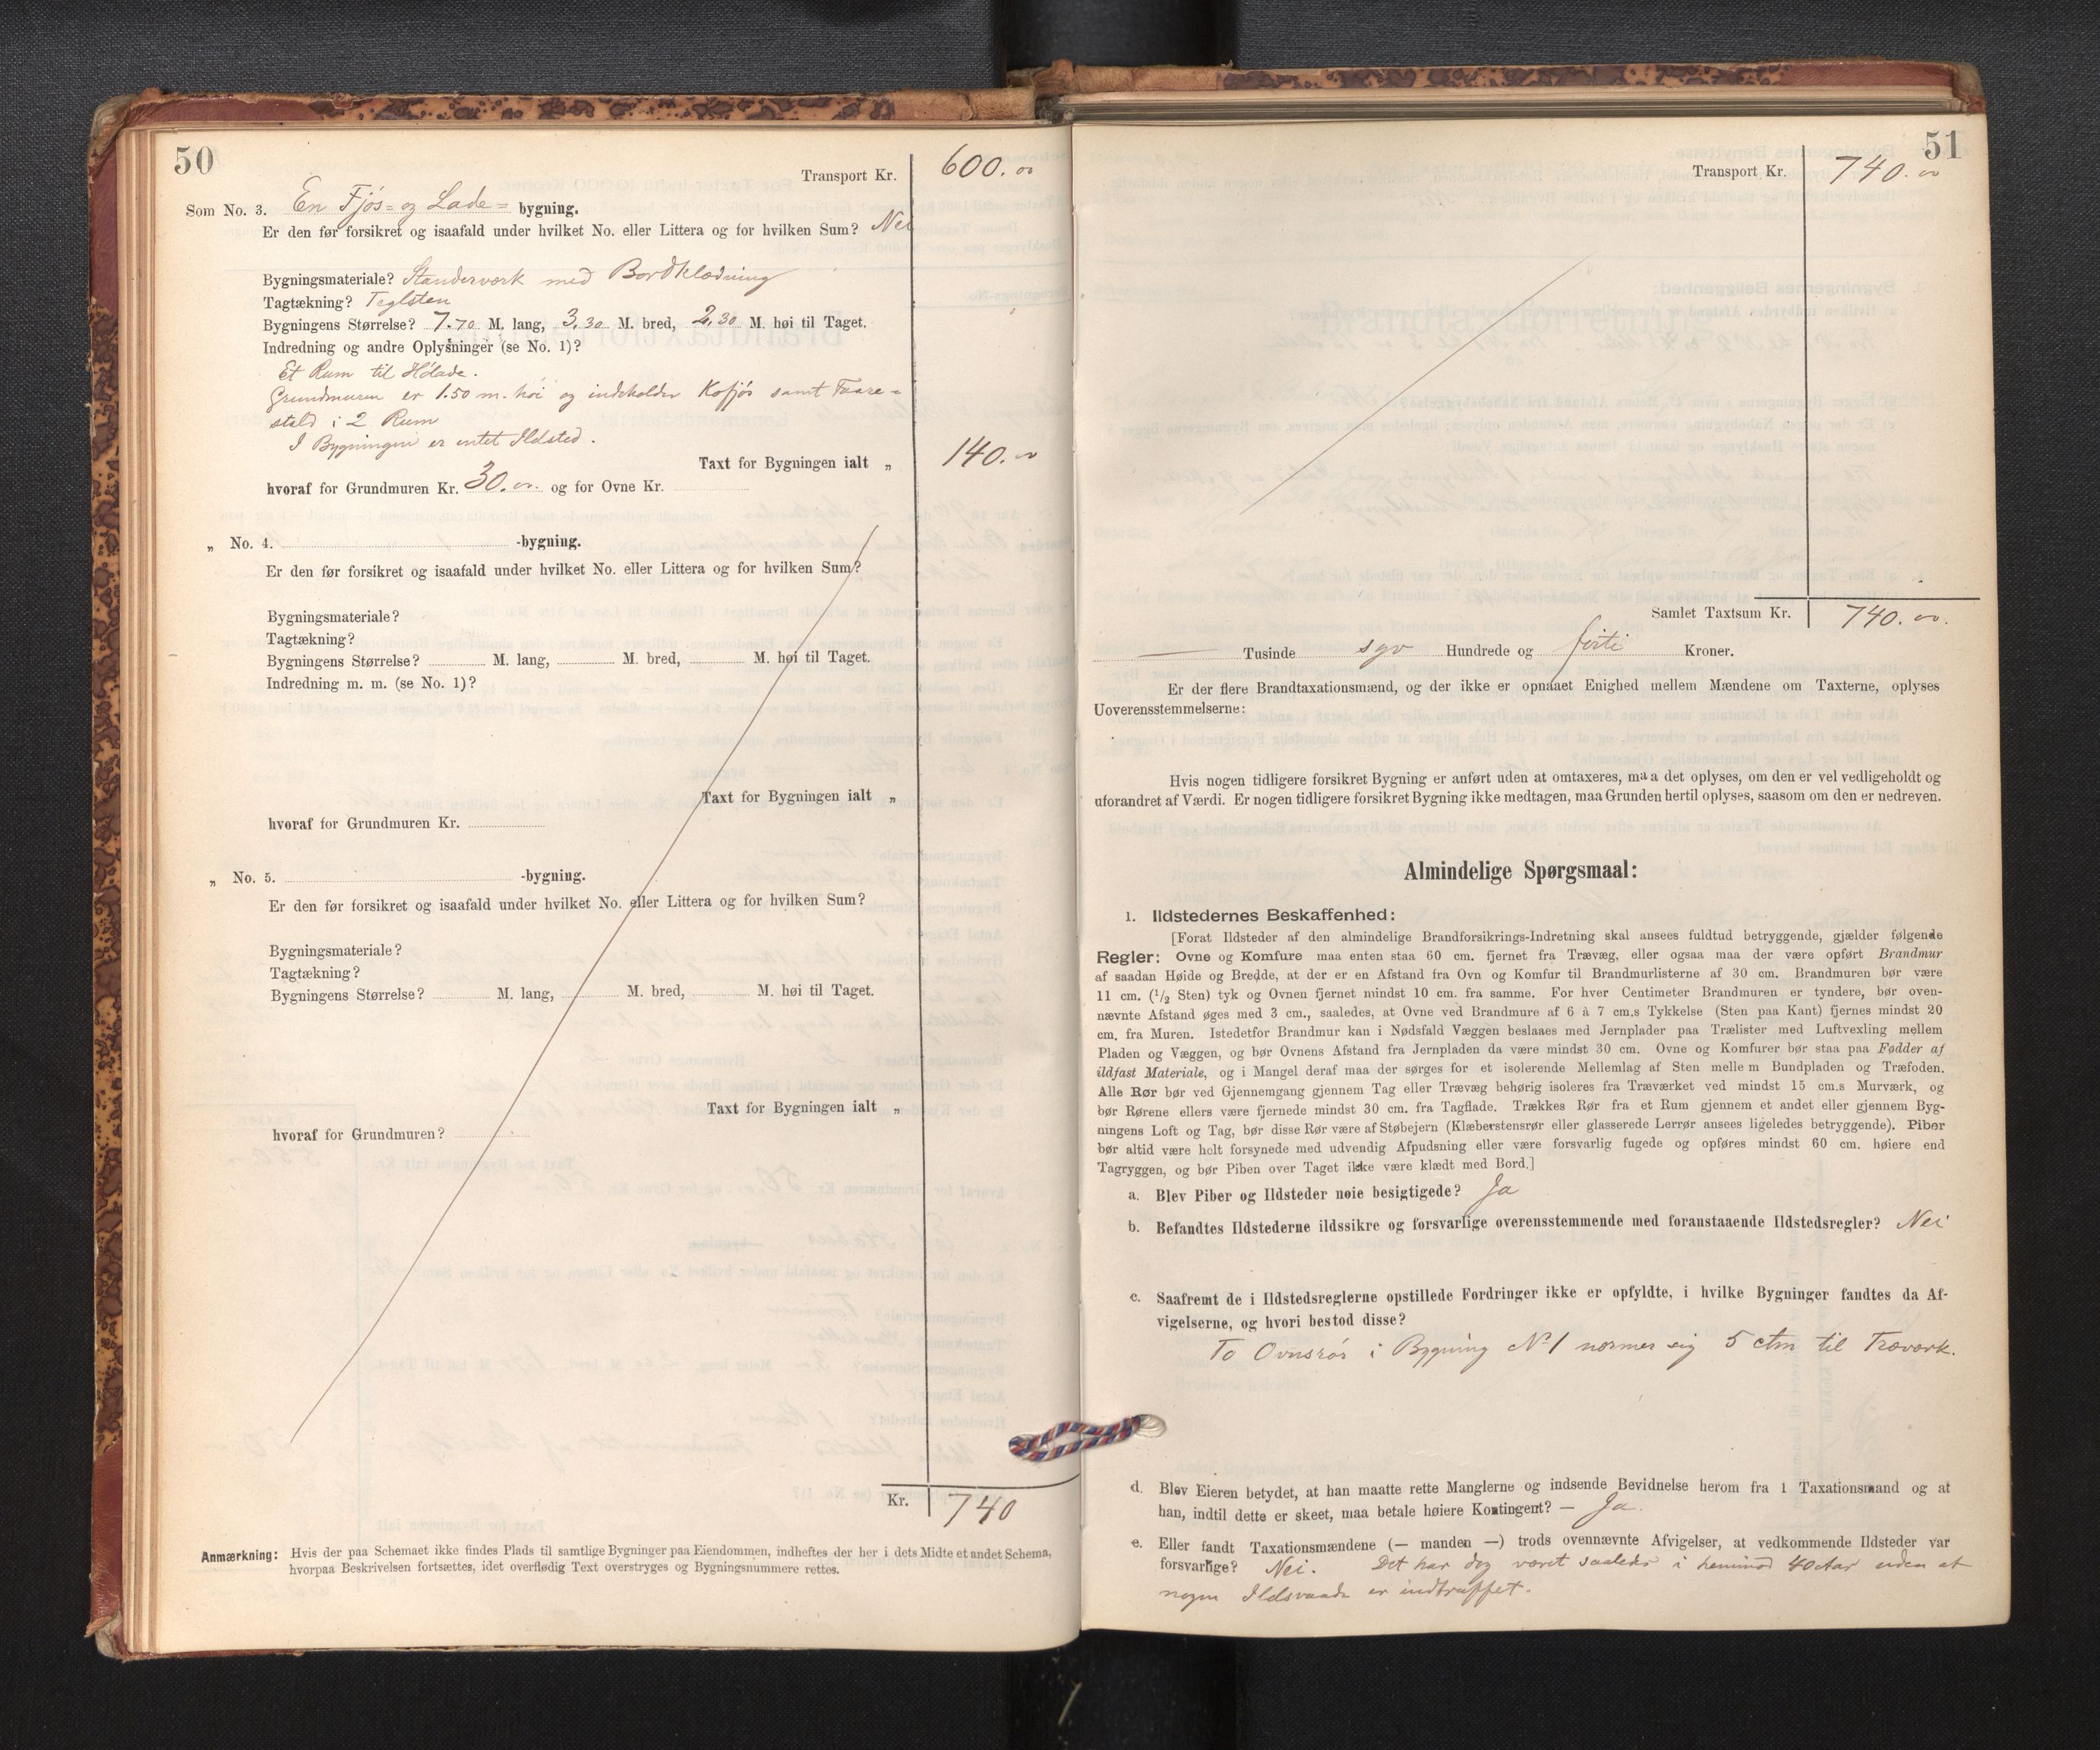 50
Transport Kr. 600.00
Som No. 3. En Fjös- og Lade- bygning.
Er den før forsikret og isaafald under hvilket No. eller Littera og for hvilken Sum? Nei
Bygningsmateriale? Standerværk med Bordklædning
Tagtækning? Teglsten
Bygningens Størrelse? 7.70 M. lang, 3,30 M. bred, 2,30 M. høi til Taget.
Indredning og andre Oplysninger (se No. 1)?
Et Rum til Hölade.
Grundmuren er 1.50 m. höi og indeholder Kofjös samt Faare-
stald i 2 Rum
I Bygningen er intet Ildsted.
Taxt for Bygningen ialt „ 140.00
hvoraf for Grundmuren Kr. 30.00. og for Ovne Kr.
„ No. 4. -bygning.
Er den før forsikret og isaafald under hvilket No. eller Littera og for hvilken Sum?
Bygningsmateriale?
Tagtækning?
Bygningens Størrelse? M. lang, M. bred, M. høi til Taget.
Indredning m. m. (se No. 1)?
Taxt for Bygningen ialt „
hvoraf for Grundmuren Kr.
„ No. 5. -bygning.
Er den før forsikret og isaafald under hvilket No. eller Littera og for hvilken Sum?
Bygningsmateriale?
Tagtækning?
Bygningens Størrelse? M. lang, M. bred, M. høi til Taget.
Taxt for Bygningen ialt „
hvoraf for Grundmuren?
Kr. 740
Anmærkning: Hvis der paa Schemaet ikke findes Plads til samtlige Bygninger paa Eiendommen, indheftes der her i dets Midte et andet Schema,
hvorpaa Beskrivelsen fortsættes, idet overflødig Text overstryges og Bygningsnummere rettes.
51
Transport Kr. 740.00
Samlet Taxtsum Kr. 740.00.
— Tusinde syv Hundrede og forti Kroner.
Er der flere Brandtaxationsmænd, og der ikke er opnaaet Enighed mellem Mændene om Taxterne, oplyses
Uoverensstemmelserne:
Hvis nogen tidligere forsikret Bygning er anført uden at omtaxeres, maa det oplyses, om den er vel vedligeholdt og
uforandret af Værdi. Er nogen tidligere forsikret Bygning ikke medtagen, maa Grunden hertil oplyses, saasom om den er nedreven.
Almindelige Spørgsmaal:
1. Ildstedernes Beskaffenhed:
[Forat Ildsteder af den almindelige Brandforsikrings-Indretning skal ansees fuldtud betryggende, gjælder følgende
Regler: Ovne og Komfure maa enten staa 60 cm. fjernet fra Trævæg, eller ogsaa maa der være opført Brandmur
af saadan Høide og Bredde, at der er en Afstand fra Ovn og Komfur til Brandmurlisterne af 30 cm. Brandmuren bør være
11 cm. (1/2 Sten) tyk og Ovnen fjernet mindst 10 cm. fra samme. For hver Centimeter Brandmuren er tyndere, bør oven-
nævnte Afstand øges med 3 cm., saaledes, at Ovne ved Brandmure af 6 à 7 cm.s Tykkelse (Sten paa Kant) fjernes mindst 20
cm. fra Muren. Istedetfor Brandmur kan i Nødsfald Væggen beslaaes med Jernplader paa Trælister med Luftvexling mellem
Pladen og Væggen, og bør Ovnens Afstand fra Jernpladen da være mindst 30 cm. Ovne og Komfurer bør staa paa Fødder af
ildfast Materiale, og i Mangel deraf maa der sørges for et isolerende Mellemlag af Sten mellem Bundpladen og Træfoden.
Alle Rør bør ved Gjennemgang gjennem Tag eller Trævæg behørig isoleres fra Træværket ved mindst 15 cm.s Murværk, og
bør Rørene ellers være fjernede mindst 30 cm. fra Tagflade. Trækkes Rør fra et Rum gjennem et andet eller gjennem Byg-
ningens Loft og Tag, bør disse Rør være af Støbejern (Klæberstensrør eller glasserede Lerrør ansees ligeledes betryggende). Piber
bør altid være helt forsynede med udvendig Afpudsning eller være forsvarlig fugede og opføres mindst 60 cm. høiere end
Tagryggen, og bør Piben over Taget ikke være klædt med Bord.]
a. Blev Piber og Ildsteder nøie besigtigede? Ja
b. Befandtes Ildstederne ildssikre og forsvarlige overensstemmende med foranstaaende Ildstedsregler? Nei
c. Saafremt de i Ildstedsreglerne opstillede Fordringer ikke er opfyldte, i hvilke Bygninger fandtes da Af-
vigelserne, og hvori bestod disse?
To Ovnsrör i Bygning No 1 nærmer sig 5 ctm til Træværk.
d. Blev Eieren betydet, at han maatte rette Manglerne og indsende Bevidnelse herom fra 1 Taxationsmand og at
han, indtil dette er skeet, maa betale høiere Kontingent? — Ja.
e. Eller fandt Taxationsmændene (— manden —) trods ovennævnte Afvigelser, at vedkommende Ildsteder var
forsvarlige? Nei. Det har dog været saaledes i henimod 40 Aar uden at
nogen Ildsvaade er indtruffet.